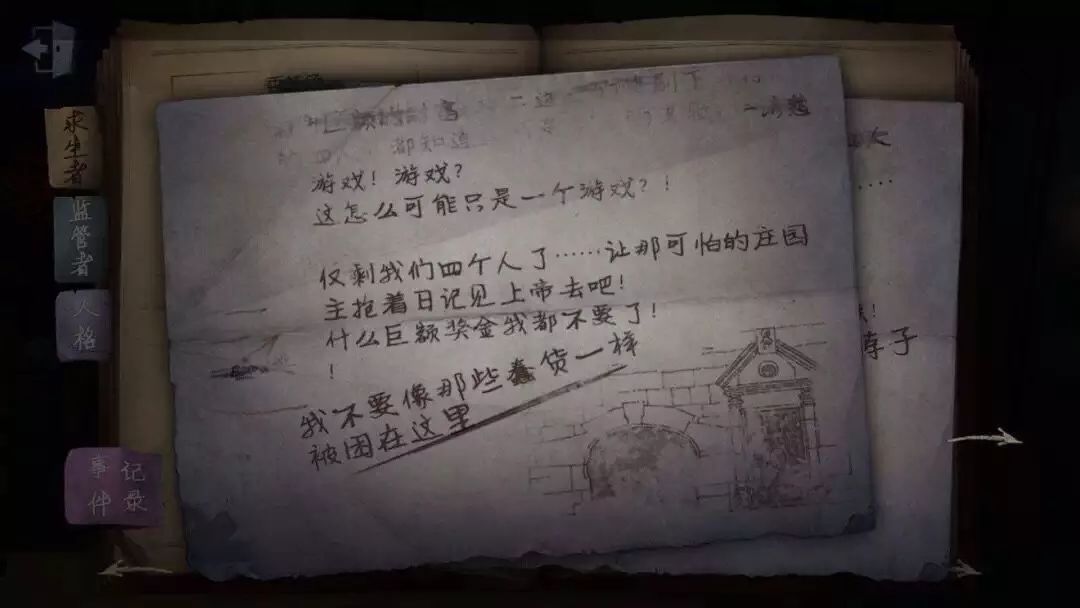 求生者
监管者
人格
事件
记录
都知道
游戏！游戏？
这怎么可能只是一个游戏？！
仅剩我们四个人了……让那可怕的庄园
主抱着日记见上帝去吧！
什么巨额奖金我都不要了！
！
我不要像那些蠢货一样
被困在这里
……
子